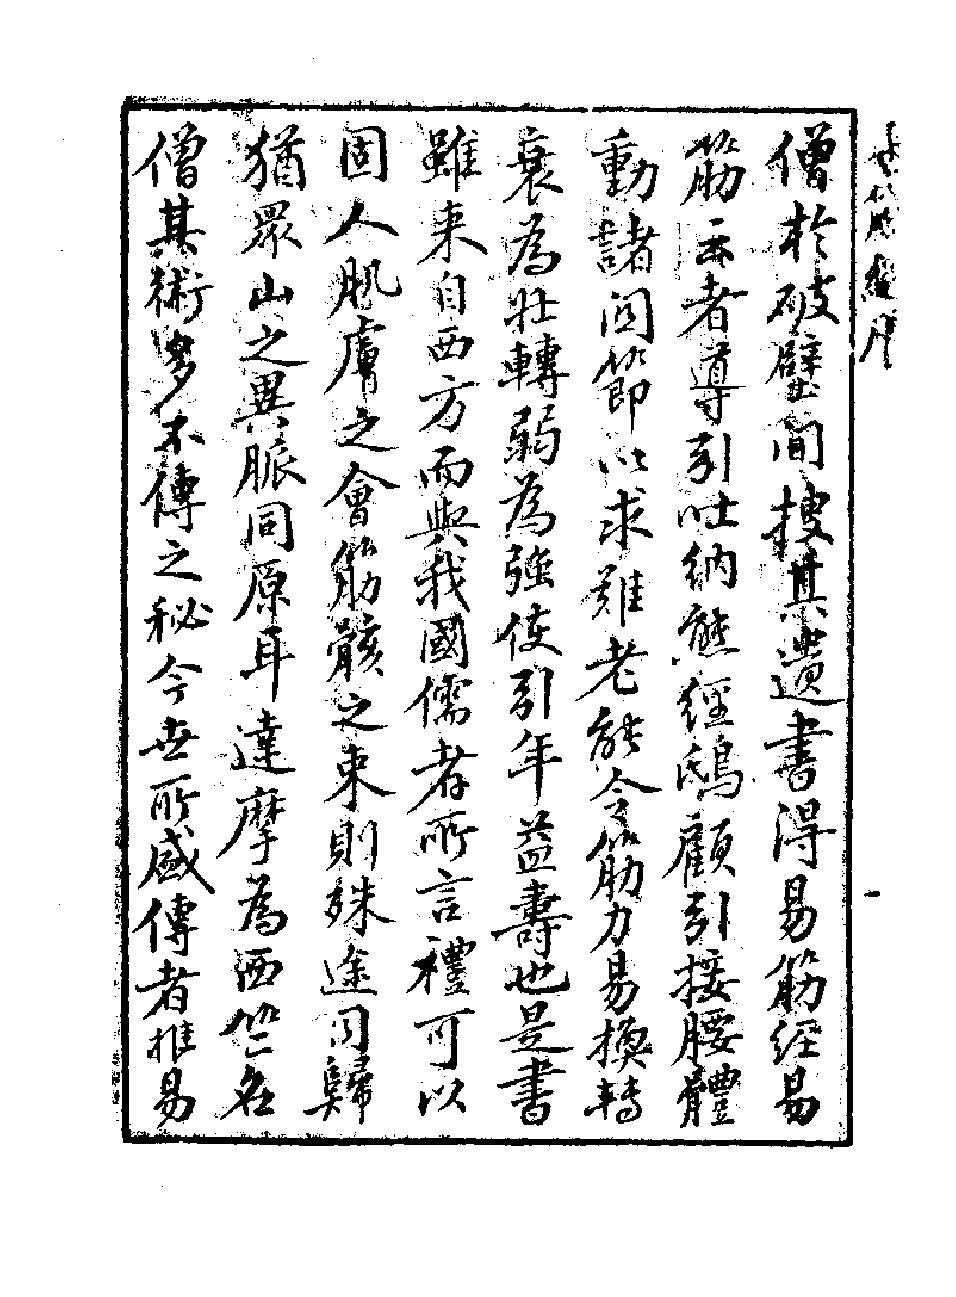 僧於破壁間搜其遺書得易筋經易
筋云者導引吐納熊經鴟顧引接腰體
動諸関節以求難老能令筋力易換轉
衰為壯轉弱為強使引年益壽也是書
雖来自西方而與我國儒者所言禮可以
固人肌膚之會筋骸之束則殊途同歸
猶眾山之異脈同原耳達摩為西竺名
僧其術多不傳之秘今世所盛傳者惟易